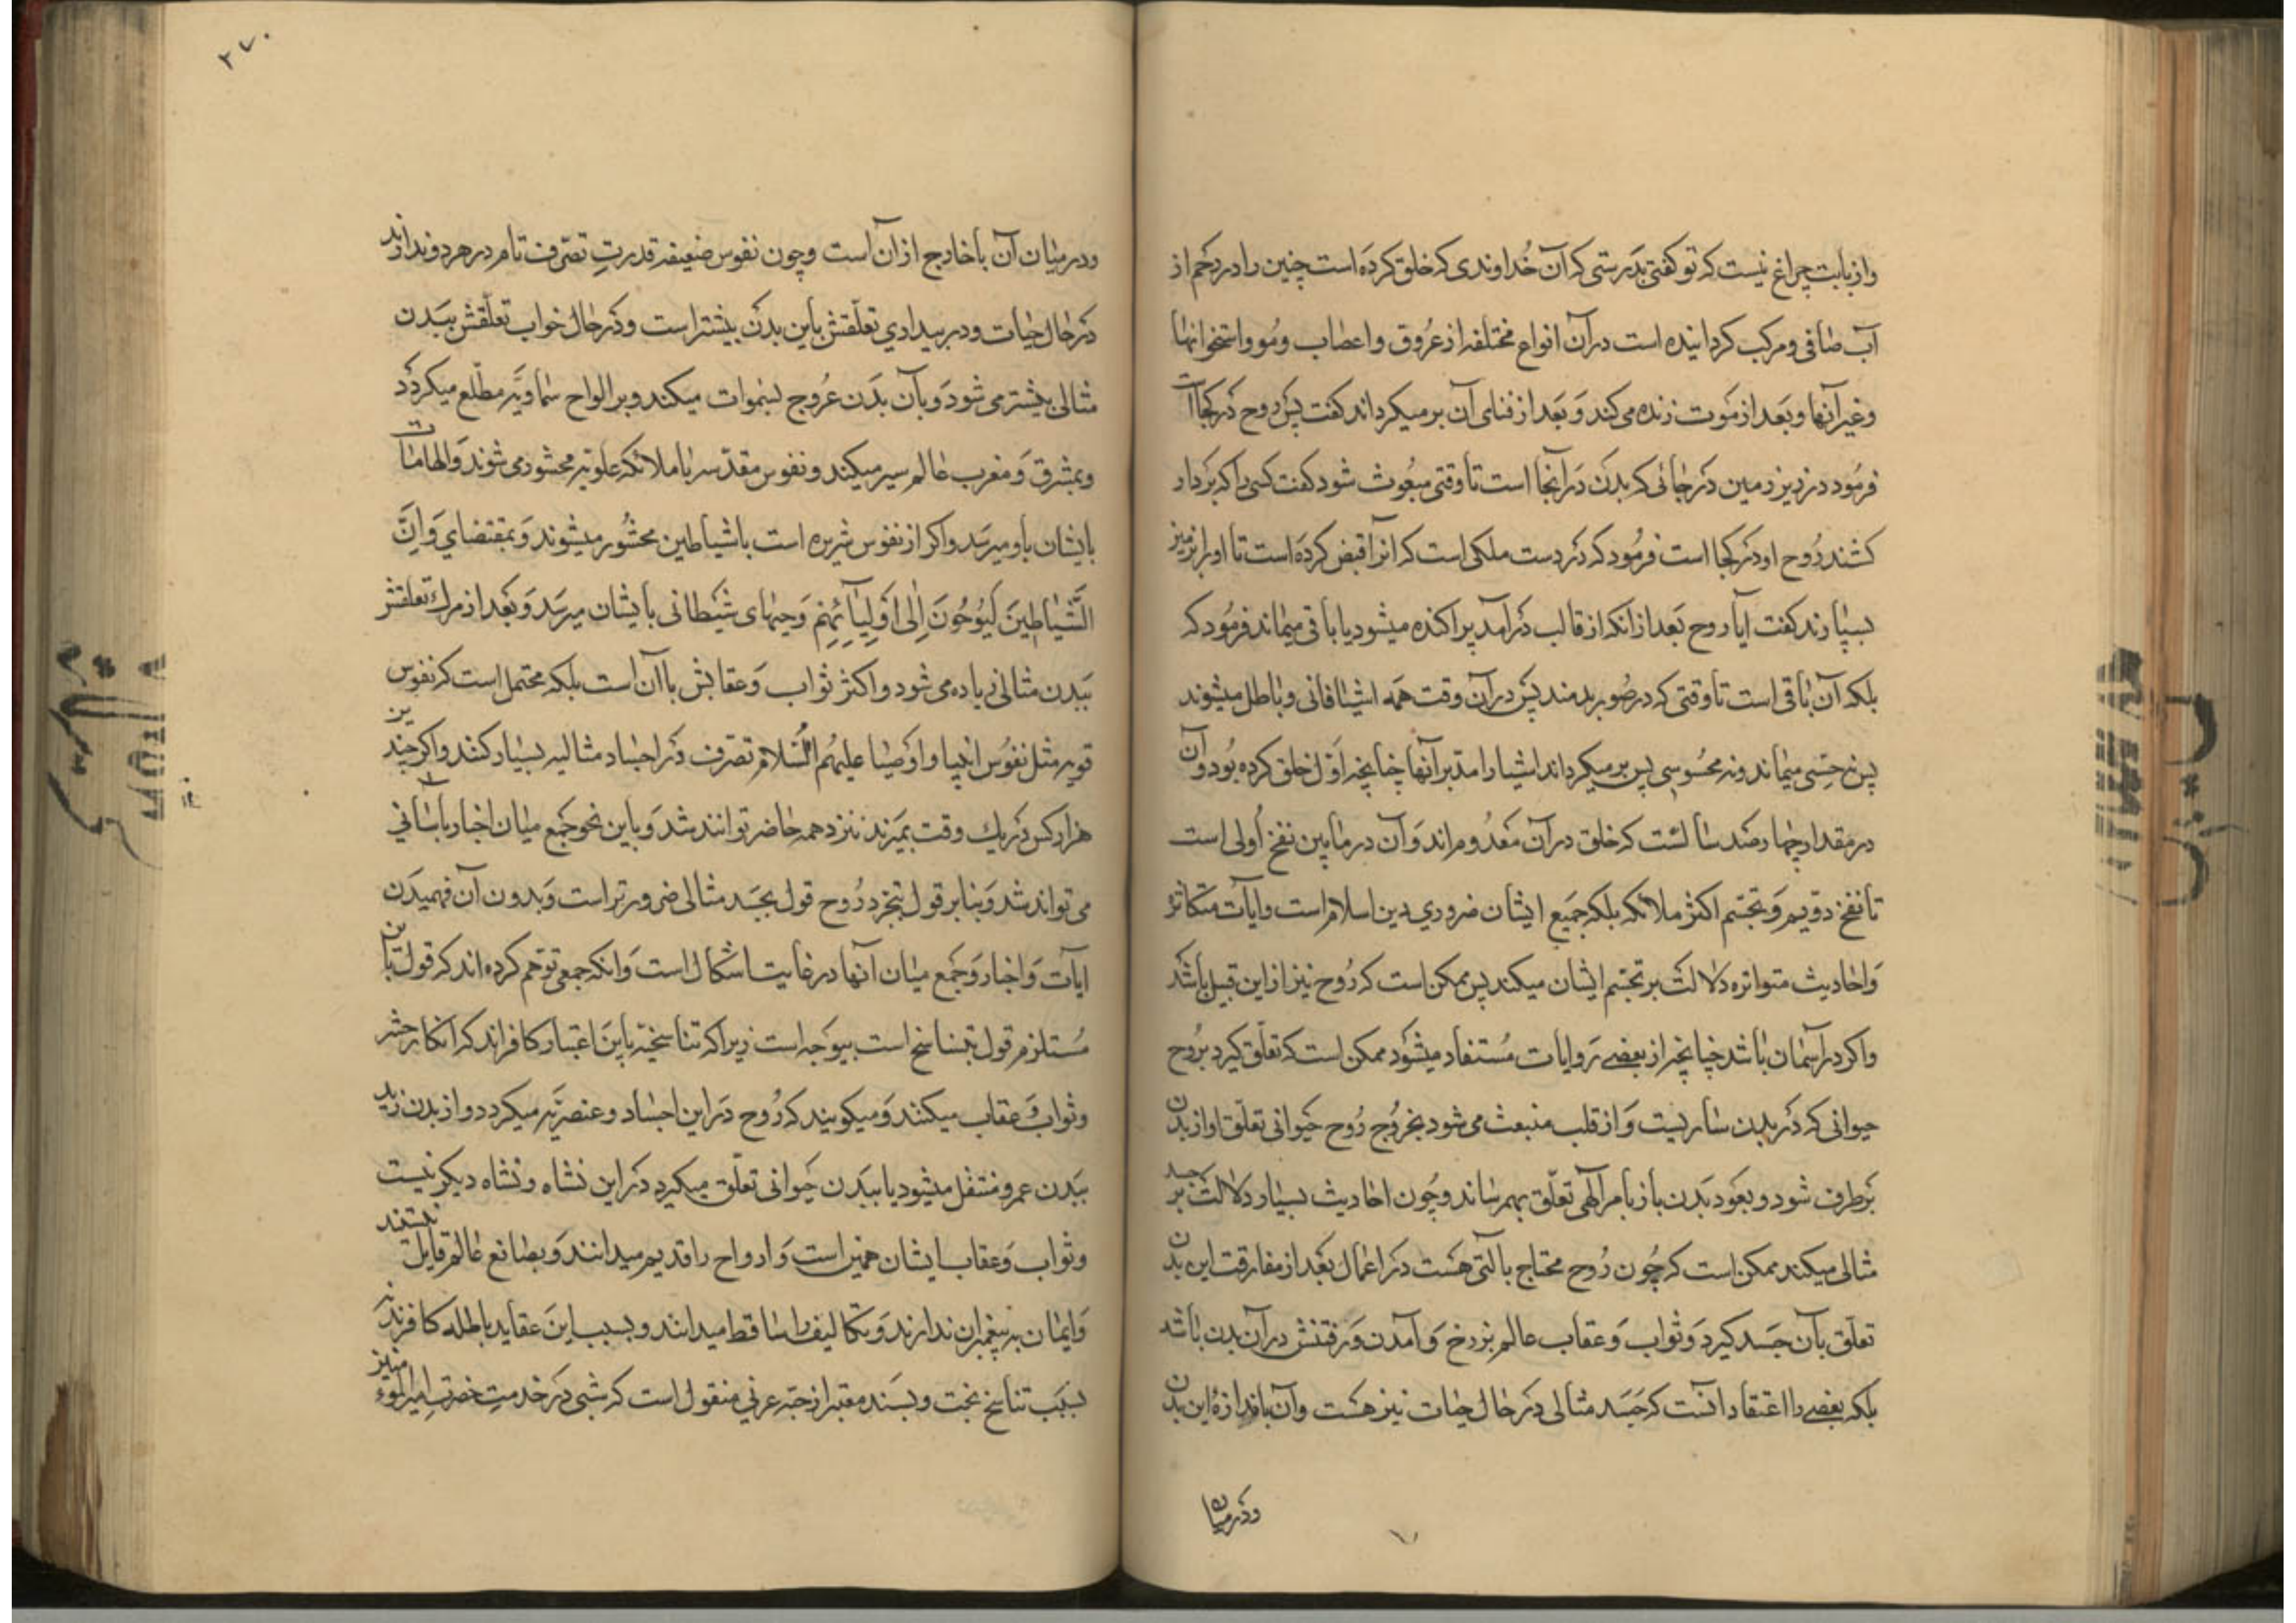 وازبابت چراغ نیست که تو کفتی بدرستی که آن خداوندی که خلق کرده است چنین را در رحم از
آب صافی و مرکب کردانیده است در آن انواع مختلفه از عروق و اعصاب و مو و استخوانها
و غیر آنها و بعد از موت زنده می کند و بعد از فنای آن بر میکرداند کفت پس روح در کجا است
فرمود در زیر زمین در جائی که بدن در آنجا است تا وقتی مبعوث شود کفت کسی را که بر دار
کشند روح او در کجا است فرمود که در دست ملکی است که انرا قبض کرده است تا او را بزمیز
بسپارند کفت آیا روح بعد از انکه از قالب در آمد پراکنده میشود یا باقی میماند فرمود که
بلکه آن باقی است تا وقتی که در صور بدمند پس در آن وقت همه اشیا فانی و باطل میشوند
پس نه حسی میماند و نه محسوسی پس بر میکرداند اشیا را مدبر آنها چنانچه اول خلق کرده بود و آن
در مقدار چهار صد سالست که خلق در آن معدوم اند و آن در مابین نفخ اولی است
تا نفخ دویم و تجسم اکثر ملائکه بلکه جمیع ایشان ضروری دین اسلام است و ایات متکاثره
و احادیث متواتره دلالت بر تجسم ایشان میکند پس ممکن است که روح نیز از این قبیل باشد
و اکر در آسمان باشد چنانچه از بعضی روایات مستفاد میشود ممکن است که تعلق کیرد بروح
حیوانی که در بدن ساریست و از قلب منبعث می شود بخروج روح حیوانی تعلق او از بدن
بر طرف شود و بعود بدن باز بامر الهی تعلق بهم رساند و چون احادیث بسیار دلالت بر جسد
مثالی میکند ممکن است که چون روح محتاج بالتی هست در اعمال بعد از مفارقت این بدن
تعلق بآن جسد کیرد و ثواب و عقاب عالم برزخ و آمدن و رفتنش در آن بدن باشد
بلکه بعضی را اعتقاد انست که جسد مثالی در حال حیات نیز هست و آن باندازهٔ این بدن
و در میان
۲۷۰
و در میان آن با خارج از آن است و چون نفوس ضعیفه قدرت تصرف تام در هر دو ندارند
در حال حیات و در بیداری تعلقش باین بدن بیشتر است و در حال خواب تعلقش ببدن
مثالی بیشتر می شود و بآن بدن عروج بسموات میکند و بر الواح سماویه مطلع میکردد
و بمشرق و مغرب عالم سیر میکند و نفوس مقدسه با ملائکه علویه محشور می شوند و الهامات
بایشان باو میرسد و اکر از نفوس شریره است با شیاطین محشور میشوند و بمقتضای وَاِنَّ
الشَّیاطِینَ لَیُوحُونَ اِلٰی اَوْلِیآئِهِم وحیهای شیطانی بایشان میرسد و بعد از مرک تعلقش
ببدن مثالی زیاده می شود و اکثر ثواب و عقابش باآن است بلکه محتمل است که نفوس
قویه مثل نفوس انبیا و اوصیا علیهم السلام تصرف در اجساد مثالیه بسیار کنند و اکر چندین
هزار کس در یک وقت بمیرند نزد همه حاضر توانند شد و باین نحو جمع میان اخبار باسانی
می تواند شد و بنا بر قول بتجرد روح قول بجسد مثالی ضرورتر است و بدون آن فهمیدن
ایات و اخبار و جمع میان آنها در غایت اشکال است و انکه جمعی توهم کرده اند که قول باین
مستلزم قول بتناسخ است بیوجه است زیرا که تناسخیه باین اعتبار کافراند که انکار حشر
و ثواب و عقاب میکنند و میکویند که روح در این اجساد و عنصریه میکردد و از بدن زید
ببدن عمرو منتقل میشود یا ببدن حیوانی تعلق میکیرد در این نشاه و نشاه دیکر نیست
و ثواب و عقاب ایشان همین است و ارواح را قدیم میدانند و بصانع عالم قایل نیستند
و ایمان به پیغمبران ندارند و تکالیف را ساقط میدانند و بسبب این عقاید باطله کافرند
بسبب تناسخ بحت و بسند معتبر از حبه عرنی منقول است که شبی در خدمت حضرت امیر المومنین